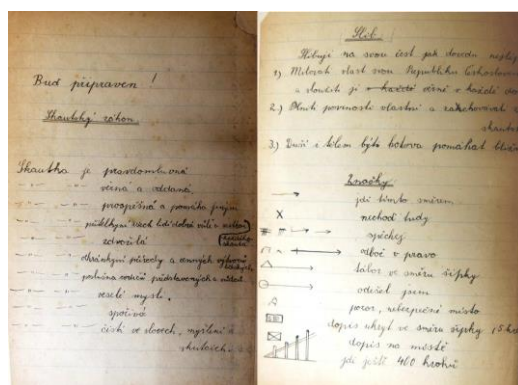 Buď připraven!
Skautský zákon.
Skautka je pravdomluvná
věrna a oddaná,
prospěšná a pomáhá jiným
přítelkyní všech lidí dobré vůle a
zdvořilá
ochránkyní přírody a cenných výtvorů
poslušna rodičů představených a
veselé mysli,
spořivá
čistá ve slovech, myšlení a
skutcích
Slib.
Slibuji na svou čest jak dovedu nejlép
1) Milovati vlast svou Republiku Českosloven
a sloužiti jí věrně v každé do
2.) Plniti povinnosti vlastní a zachovávati
skauts
3.) Duší i tělem býti hotova pomáhat bliž
Značky
jdi tímto směrem
X nechoď tudy
spěchej
odboč v pravo
tábor ve směru šipky
odešel jsem
pozor, nebezpečné místo
dopis ukryt ve směru šipky
dopis na místě
jdi ještě 400 kroků